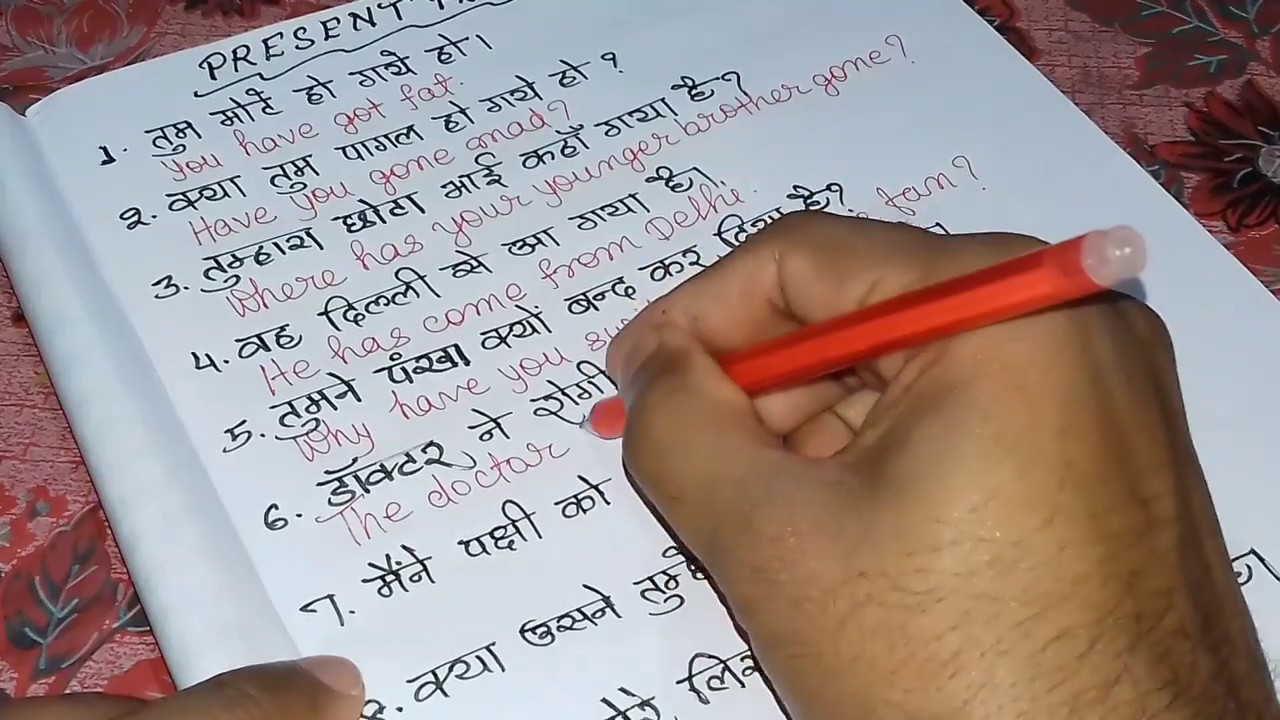 PRESENT
1. तुम मोटे हो गये हो।
You have got fat.
2. क्या तुम पागल हो गये हो ?
Have you gone mad?
3. तुम्हारा छोटा भाई कहाँ गया है?
Where has your younger brother gone?
4. वह दिल्ली से आ गया है।
He has come from Delhi.
5. तुमने पंखा क्यों बन्द कर दिया है?
Why have you fan?
6. डॉक्टर ने रोगी
The doctor
7. मैंने पक्षी को
8. क्या उसने